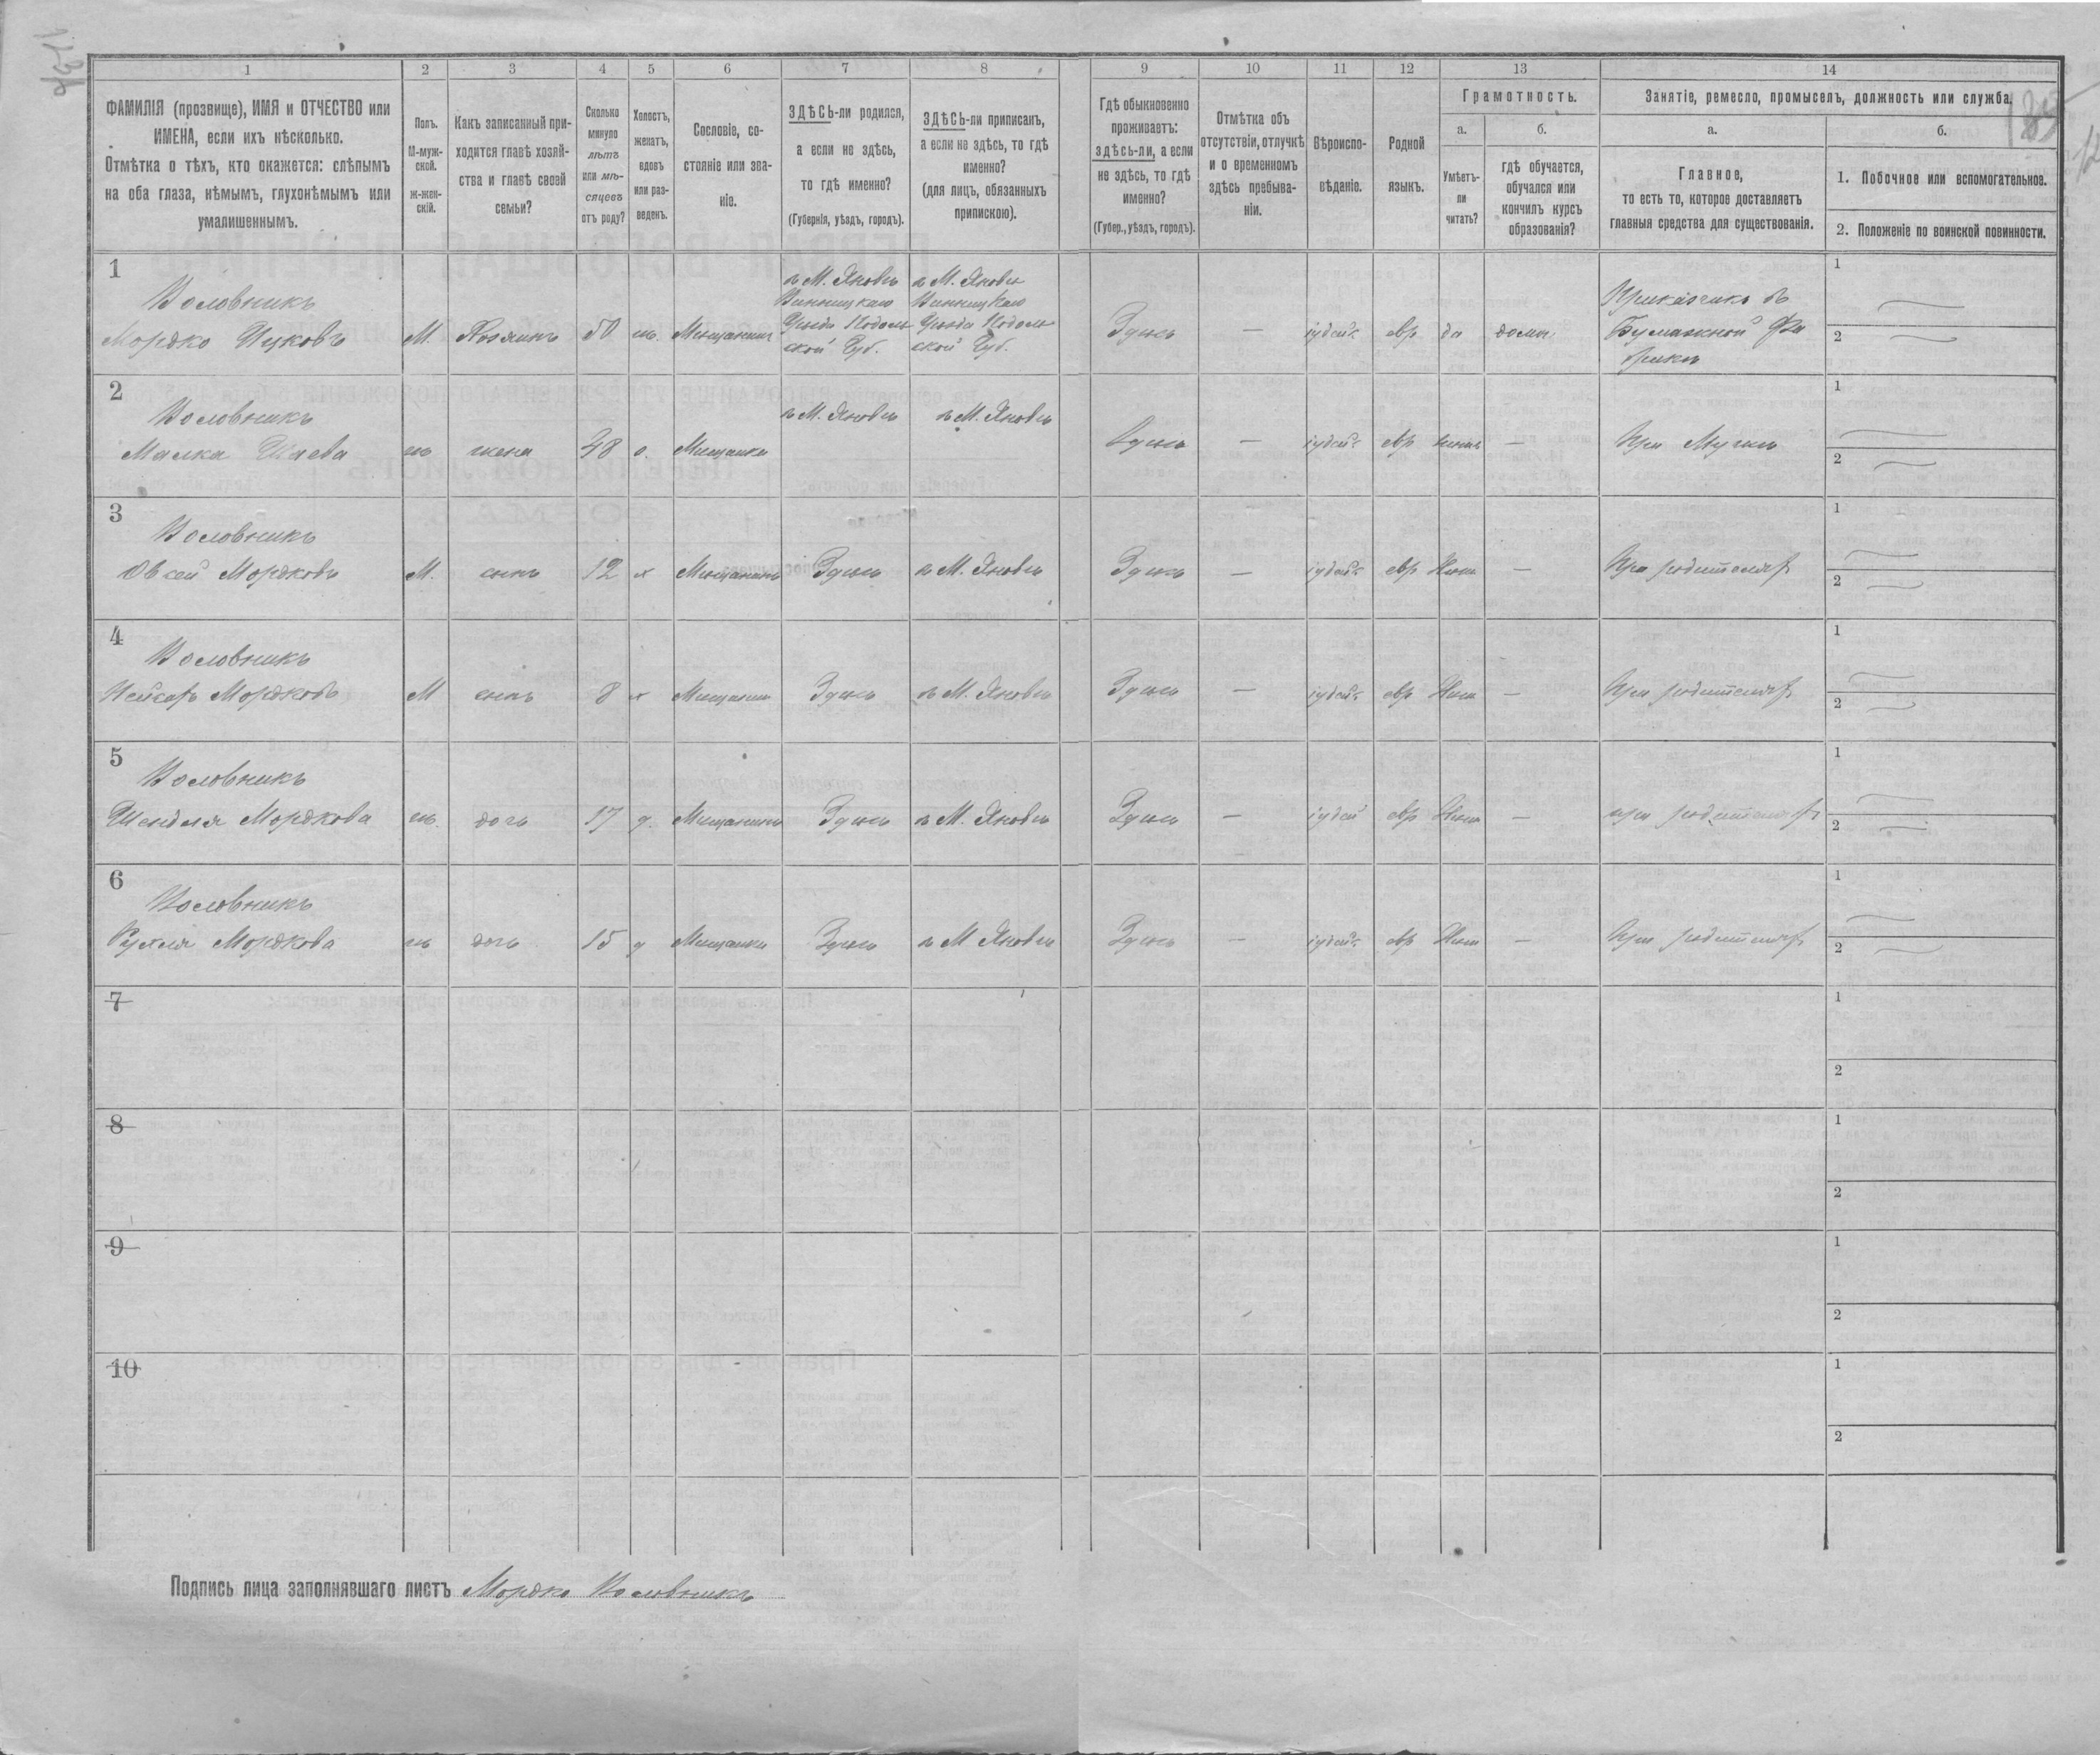 1
2
3
4
5
6
7
8
9
10
11
12
13
14
ФАМИЛІЯ (прозвище), ИМЯ и ОТЧЕСТВО или
ИМЕНА, если ихъ нѣсколько.
Отмѣтка о тѣхъ, кто окажется: слѣпымъ
на оба глаза, нѣмымъ, глухонѣмымъ или
умалишеннымъ.
Полъ.
М-муж-
ской.
Ж-жен-
скій.
Какъ записанный при-
ходится главѣ хозяй-
ства и главѣ своей
семьи?
Сколько
минуло
лѣтъ
или мѣ-
сяцевъ
отъ роду?
Холостъ,
женатъ,
вдовъ
или раз-
веденъ.
Сословіе, со-
стояніе или зва-
ніе.
ЗДѢСЬ-ли родился,
а если не здѣсь,
то гдѣ именно?
(Губернія, уѣздъ, городъ).
ЗДѢСЬ-ли приписанъ,
а если не здѣсь, то гдѣ
именно?
(для лицъ, обязанныхъ
припискою).
Гдѣ обыкновенно
проживаетъ:
здѣсь-ли, а если
не здѣсь, то гдѣ
именно?
(Губер., уѣздъ, городъ).
Отмѣтка объ
отсутствіи, отлучкѣ
и о временномъ
здѣсь пребыва-
ніи.
Вѣроиспо-
вѣданіе.
Родной
языкъ.
Грамотность.
а.
Умѣетъ-
ли
читать?
б.
гдѣ обучается,
обучался или
кончилъ курсъ
образованія?
Занятіе, ремесло, промыселъ, должность или служба.
а.
Главное,
то есть то, которое доставляетъ
главныя средства для существованія.
б.
1. Побочное или вспомогательное.
2. Положеніе по воинской повинности.
1
Воловникъ
Мордко Ицковъ
М.
Хозяинъ
50
ж.
Мещанинъ
въ М. Яновѣ
Винницкаго
Уезда Подоль
ской Губ.
въ М. Яновѣ
Винницкаго
Уезда Подоль
ской Губ.
Здѣсь
—
іудейс.
евр
да
дома
Приказчикъ въ
Бумажной Фа
брикѣ
1
2
2
Воловникъ
Малка
ж
жена
48
з.
Мещанка
въ М. Яновѣ
въ М. Яновѣ
Здѣсь
—
іудейс.
евр
—
При Мужѣ
1
2
3
Воловникъ
Овсей Мордковъ
М.
сынъ
12
х
Мещанинъ
Здѣсь
въ М. Яновѣ
Здѣсь
—
іудейс.
евр
Нѣтъ
—
При родителяхъ
1
2
4
Воловникъ
Мордковъ
М
сынъ
8
х
Мещанин
Здѣсь
въ М. Яновѣ
Здѣсь
—
іудейс.
евр
Нѣтъ
—
При родителяхъ
1
2
5
Воловникъ
Шейдля Мордкова
ж.
дочь
17
д.
Мещанинъ
Здѣсь
въ М. Яновѣ
Здѣсь
—
іудей
евр
Нѣтъ
—
при родителяхъ
1
2
6
Воловникъ
Рухля Мордкова
ж
дочь
15
д
Мещанка
Здѣсь
въ М Яновѣ
Здѣсь
—
іудейс.
евр
Нѣтъ
—
При родителяхъ
1
2
7
1
2
8
1
2
9
1
2
10
1
2
Подпись лица заполнявшаго листъ Мордко Воловникъ